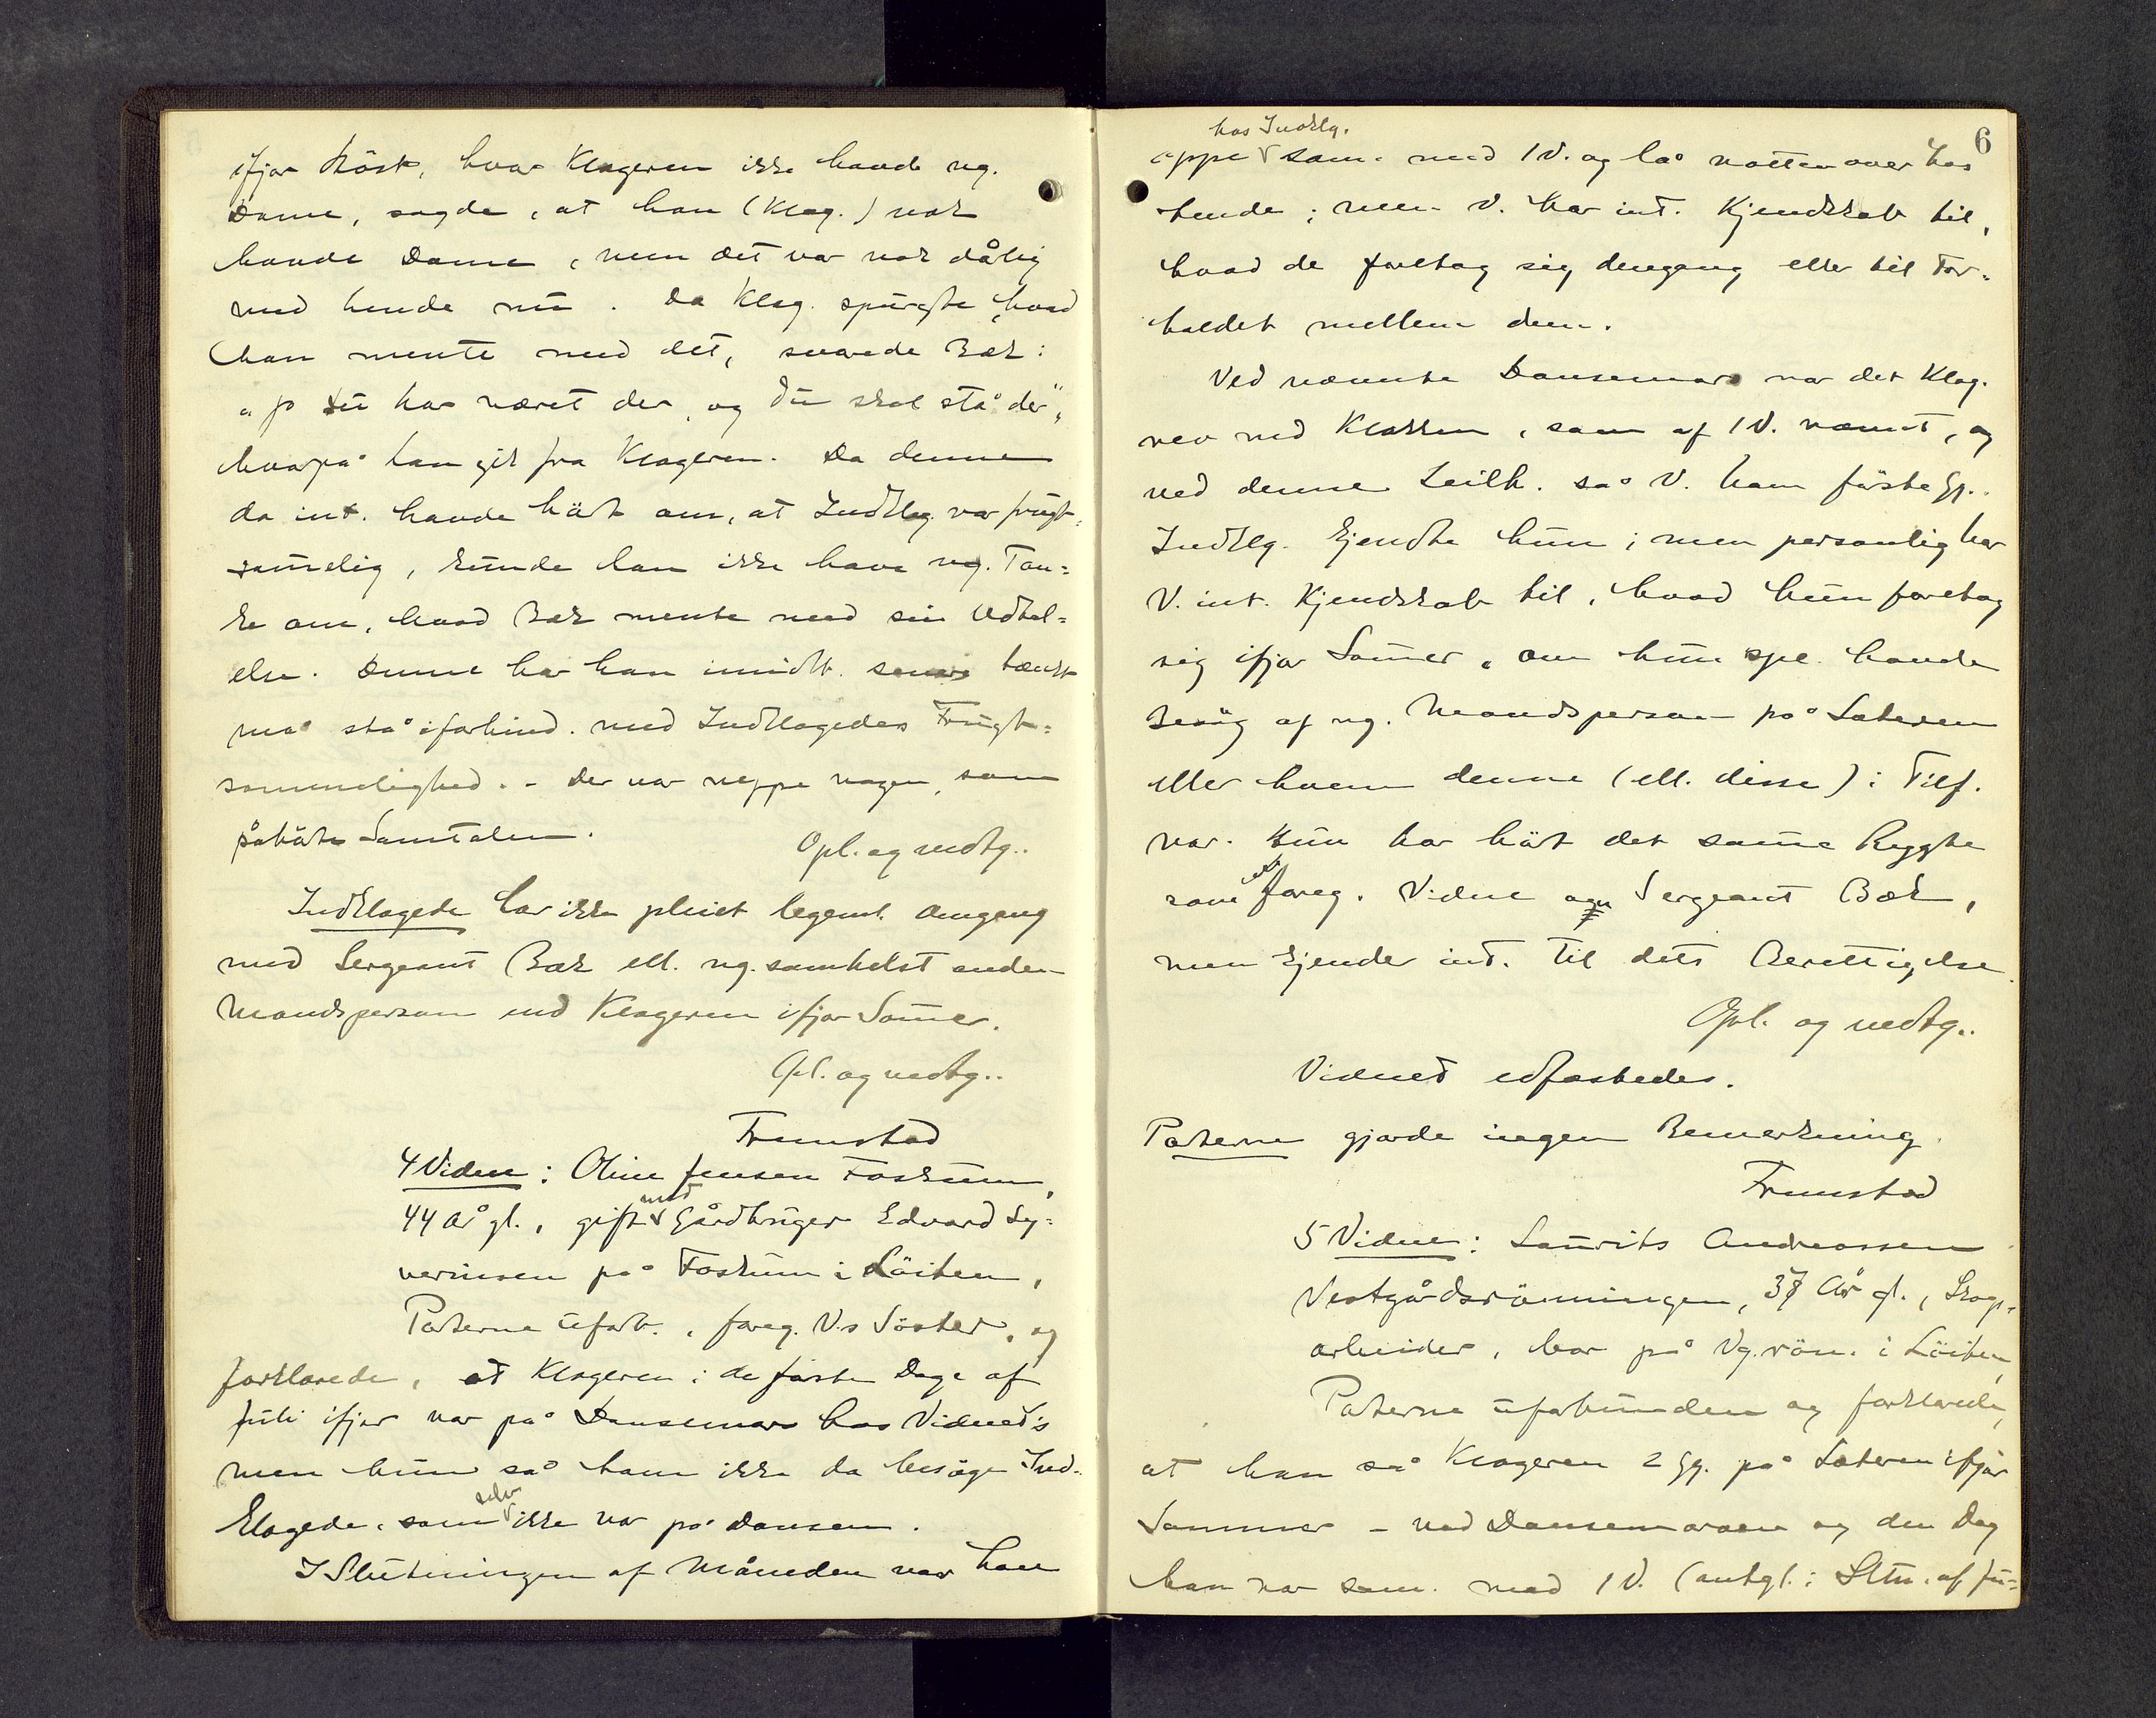 ifjor Höst, hvor Klageren ikke havde ng.
Dame, sagde, at han (Klag.) nok
havde Dame, men det var nok dålig
med hende nu. Da Klag. spurgte, hvad
han mente med det, svarede Bæk:
"Jo Du har været der, og Du skal stå der",
hvorpå han gik fra Klageren. Da denne
da int. havde hört om, at Indklag. var frugt-
sommelig, kunde han ikke have ng. Tan=
ke om, hvad Bæk mente med sin Udtal=
else. Denne har han imidlt. senere tænkt
må stå i forbind. med Indklagedes Frugt=
sommelighed. - Der var neppe nogen, som
påhörte Samtalen.
Opl. og vedtg..
Indklagede har ikke pleiet legeml. Omgang
med Sergeant Bæk ell. ng. somhelst anden
Mandsperson end Klageren ifjor Sommer.
Opl. og vedtg..
Frunstad
4 Vidne: Oline Jensen Foskum,
44 År gl., gift med Gårdbruger Edvard Sy=
verinsen på Foskum i Löiten,
Parterne uforb., foreg. V.s Söster, og
forklarede, at Klageren i de förste Dage af
Juli ifjor var på Dansemoro hos Vidnet,
men hun så ham ikke da besöge Ind=
klagede, som selv ikke var på Dansen.
I Slutningen af Måneden var han
6
hos Indklg.
oppe sam. med 1 V. og lå natten over hos
hende; men V. har int. Kjendskab til,
hvad de foretog sig dengang eller til For=
holdet mellem dem.
Ved nævnte Dansemoro var det Klag.
rev ned Klokken, som af 1 V. nævnt, og
ved denne Leilh. så V. ham förste Gg..
Indklg. kjendte hun; men personlig har
V. int. Kjendskab til, hvad hun foretog
sig ifjor Sommer, om hun spe. havde
Besög af ng. Mandsperson på Sæteren
eller hvem denne (ell. disse) i Tilf.
var. Hun har hört det samme Rygte
som foreg. Vidne om Sergeant Bæk,
men kjender int. til dets Berettigelse.
Opl. og vedtg..
Vidnet edfæstedes.
Parterne gjorde ingen Bemerkning.
Frunstad
5 Vidne: Laurits Andreassen
Vestgårdsrönningen, 37 År gl., Skog=
arbeider, bor på Vg.rön. i Löiten,
Parterne uforbunden og forklarede,
at han så Klageren 2 Gg. på Sæteren ifjor
Sommer - ved Dansemoroen og den Dag
han var sam. med 1 V. (antgl. i Sltn. af Ju=